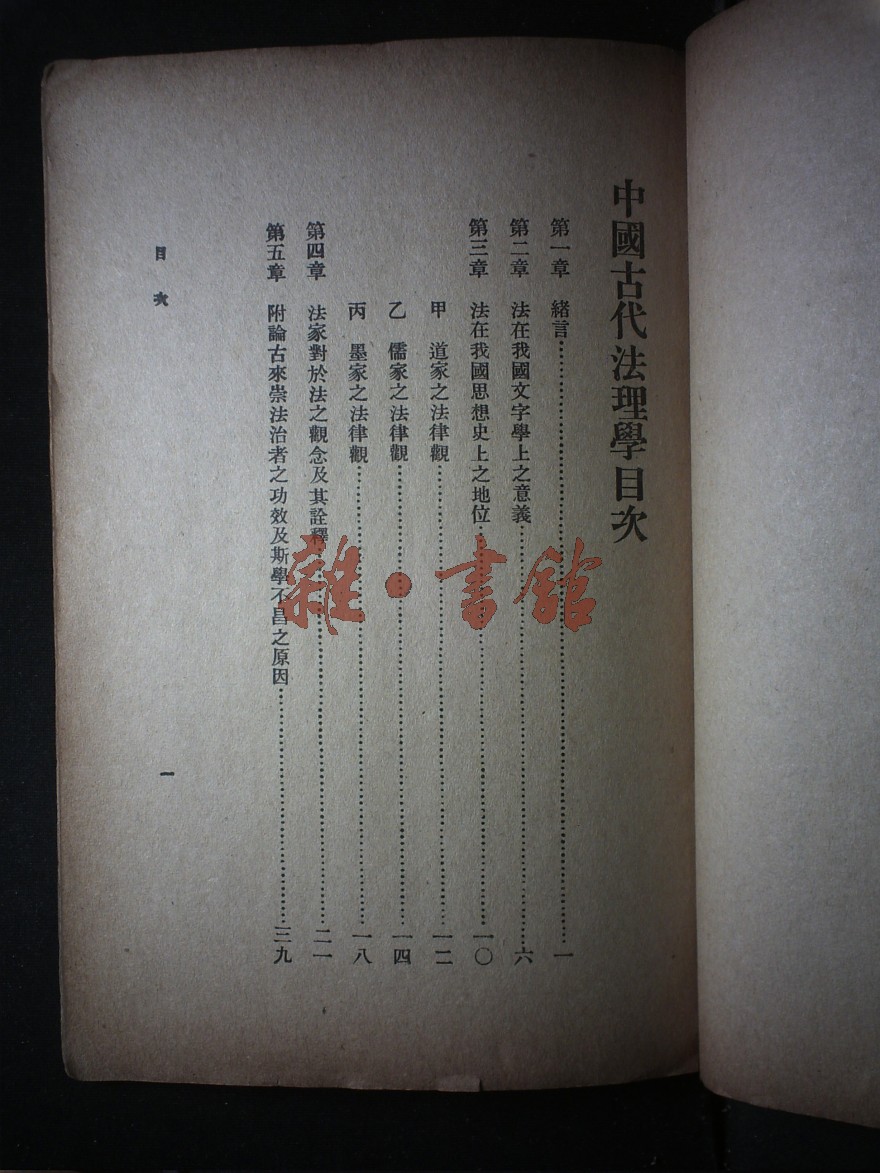 中國古代法理學目次
第一章　緒言……一
第二章　法在我國文字學上之意義……六
第三章　法在我國思想史上之地位……一〇
甲　道家之法律觀……一二
乙　儒家之法律觀……一四
丙　墨家之法律觀……一八
第四章　法家對於法之觀念及其詮釋……二一
第五章　附論古來崇法治者之功效及斯學不昌之原因……三九
目次
一
雜·書館